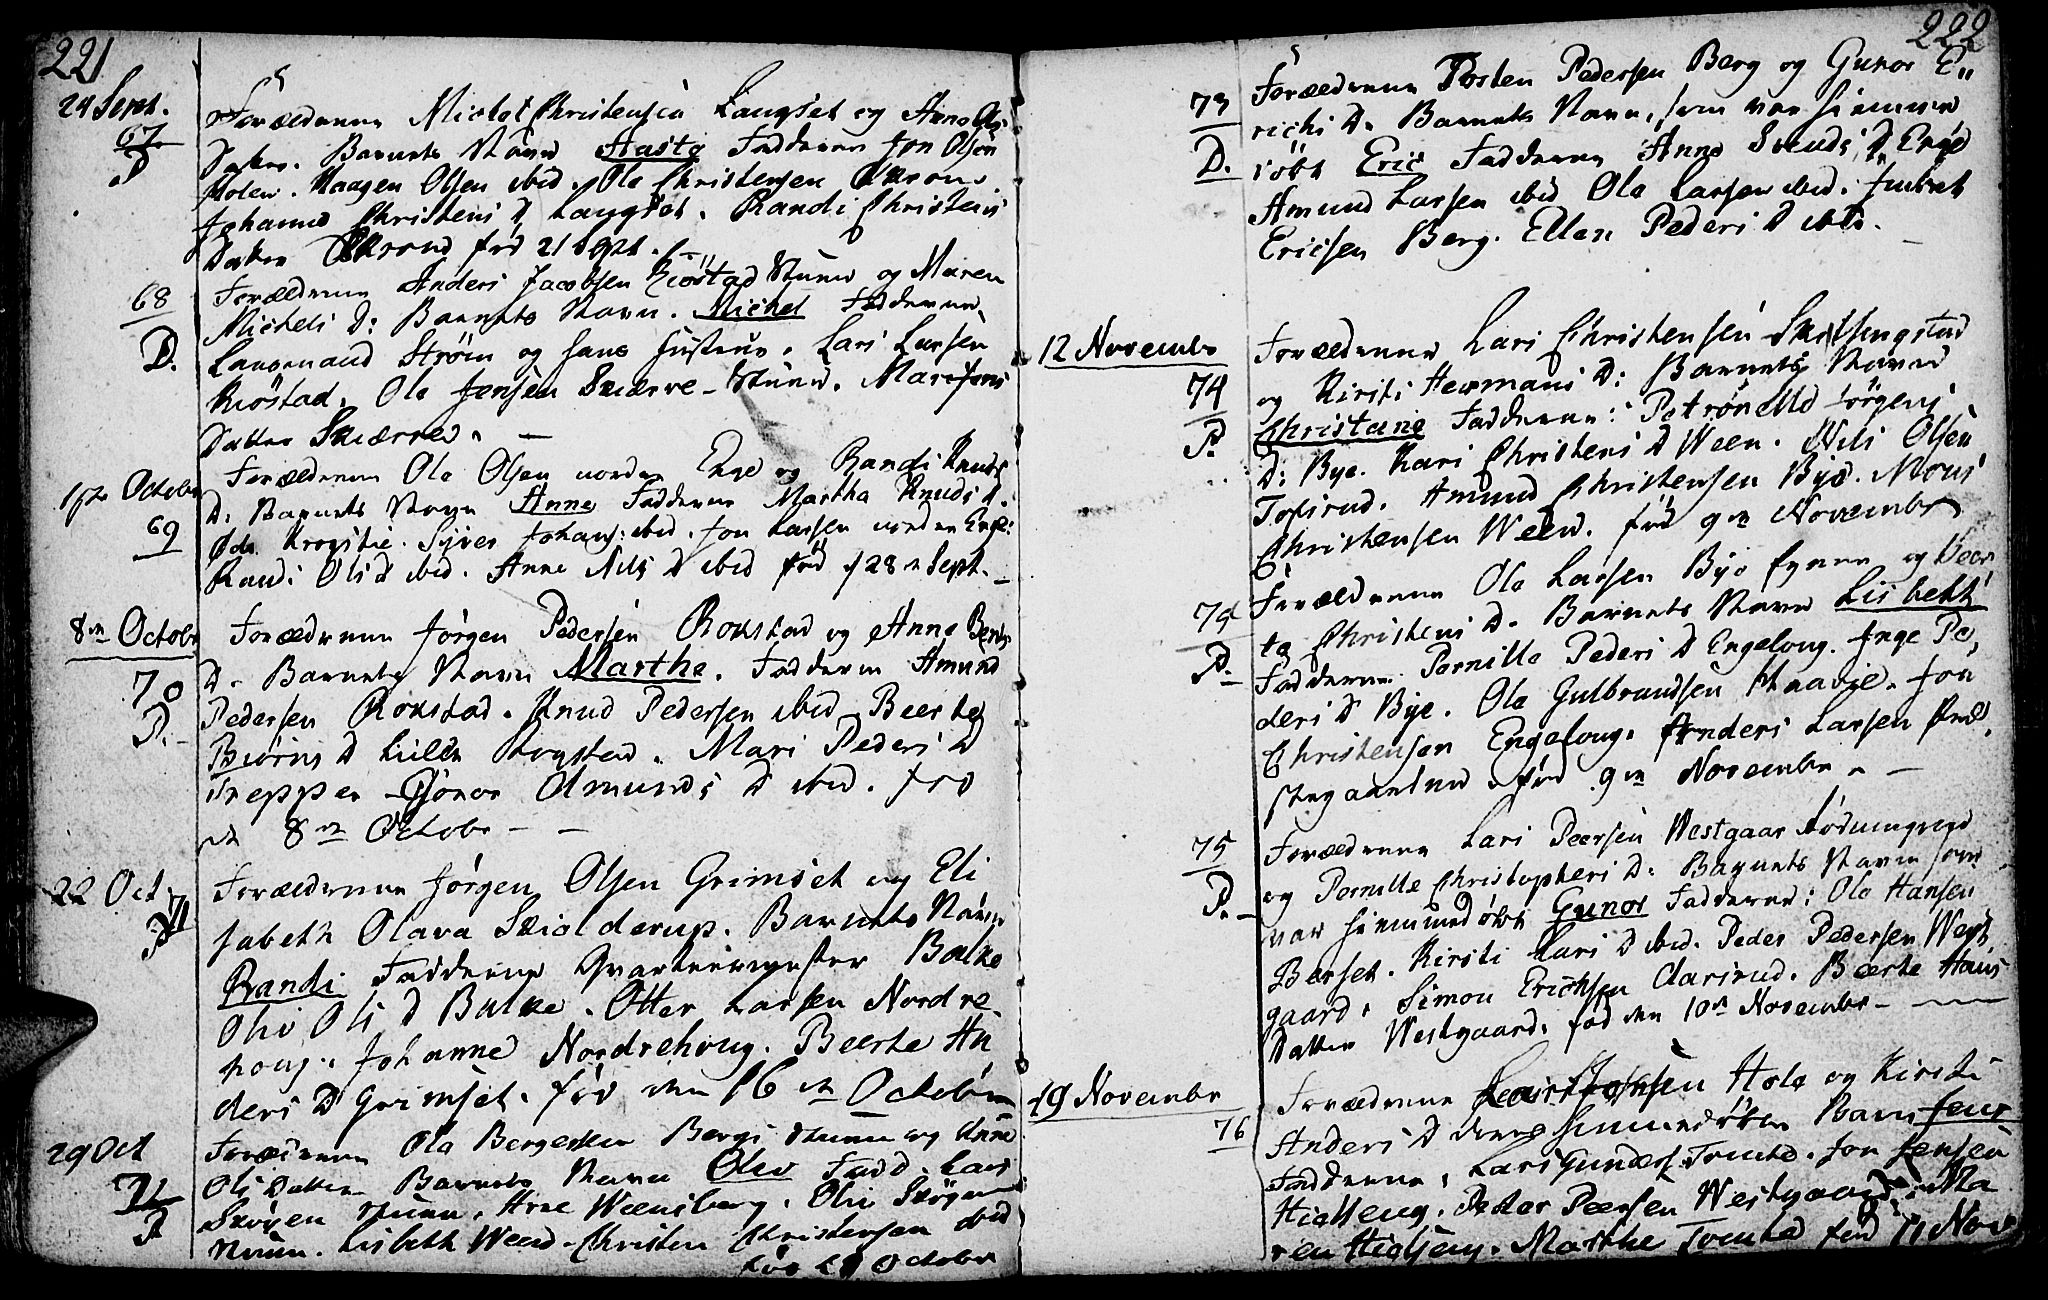 221
24 Sept.
67
D
Forældrene Michel Christensen Langset og Anne Ols
Datter. Barnets Navn Aaste Fadderne Jon Olsen
Holen. Haagen Olsen ibid. Ole Christensen
Johanne Christens D Langset. Randi Christens
Datter fød 21 Sept.
68
D.
Forældrene Anders Jacobsen Kiøstad Stuen og Maren
Michels D: Barnets Navn. Michel Fadderne
Strøm og hans Hustrue. Lars Larsen
Kiøstad. Ole Jensen Skierve-Stuen. Mari Jens
Datter Skierven.
1ste October
69
Forældrene Ole Olsen norden Enge og Randi Knuds
D: Barnets Navn Anne Fadderne Martha Knuds D.
Krogstie. Syver Johans: ibid. Jon Larsen norden Enge:
Randi Ols D ibid. Anne Nils D ibid fød 28 n Sept.
8de Octobr
70
D.
Forældrene Jørgen Pedersen Rokstad og Anne Bernts
D. Barnets Navn Marthe. Fadderne Amund
Pedersen Rokstad. Knud Pedersen ibid Beerte
Biørns D Lille Rogstad. Mari Peders D
Trepper Gønor Amunds D ibid. fød
d 8de Octobr
22 Oct
71
D
Forældrene Jørgen Olsen Grimset og Eli
sabeth Olava Skiolderup. Barnets Navn
Randi Fadderne Qvarteermester Balke
Olis D Balke. Otter Larsen Nordre
houg. Johanne Nordrehoug. Beerte An
ders D Grimset. fød den 16 de October
29 Oct
71
D
Forældrene Ole Bergersen Bergs Stuen og Anne
Ols Datter Barnets Navn Olev Fadd. Lars
Skøyen Stuen. Arne Weensberg. Olis Skøyen
Stuen. Lisbeth Ween. Christen Christensen ibid
fød October
222
73
D.
Forældrene Tosten Pedersen Berg og Gunor E„
richs D. Barnets Navn, som var hiemme
døbt Eric Fadderne Anne Svends D Enge
Amund Larsen ibid Ole Larsen ibid.
Ericsen Berg. Ellen Peders D ibid.
12 Novembr
74
D.
Forældrene Lars Christensen
og Kirsti Hermans D: Barnets Navn
Christane Fadderne: Petronelle Jørgens
D: Bye. Kari Christens D Ween. Nils Olsen
Tofsrud. Amund Christensen Bye. Mons
Christensen Ween. fød 9de Novembr
74
D.
Forældrene Ole Larsen Bye Eyene og Beer
te Christens D. Barnets Navn Lisbeth
Fadderne Pernille Peders D Engeloug. Inge Pe„
ders D Bye. Ole Gulbrandsen Haavie. Jon
Christensen Engeloug. Anders Larsen Præ„
stegaarden fød 9de Novembr
75
D.
Forældrene Lars Peersen Westgaar
og Pernille Christophers D: Barnets Navn som
var hiemmedøbt Gunor Fadderne: Ole Hansen
Berset. Kirsti Lars D ibid. Peder Pedersen West
gaard. Simon Erichsen Aarsrud. Beerte Hans
Datter Westgaard. fød den 10de Novembr
19 Novembr
76
Forældrene Lars Hole og Kirsti
Anders D hiemmedøbte Barn Jens
Fadderne. Lars Gunders. Tomte. Jon Jensen
Hielseng. Peder Peersen Westgaard. Ma
ren Hielseng. Marthe Tomte fød 11 Nov